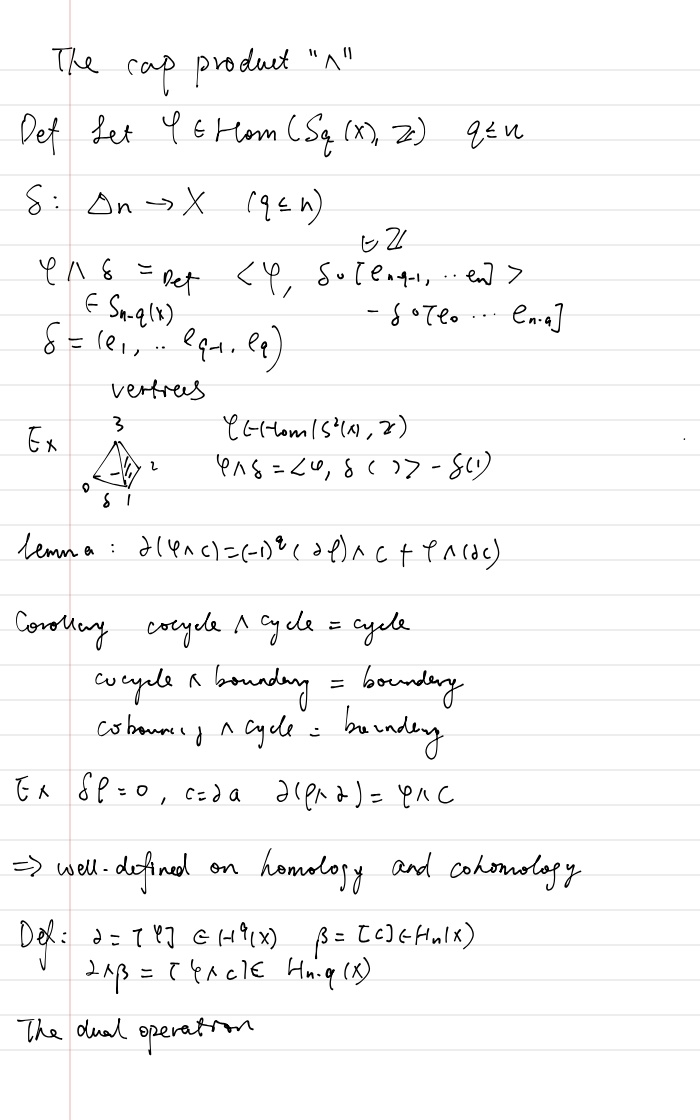 The cap product "∧"
Def Let φ ∈ Hom (Sq (X), Z) q ≤ n
δ: Δn → X (q ≤ n)
∈ Z
φ ∧ δ =Def <φ, δ∘[en-q-1, ..en] >
∈ Sn-q(x) - δ∘[e0 ... en-q]
δ = (e1, .. eq-1, eq)
vertrees
3
Ex φ ∈ Hom(S²(X), Z)
2
φ∧δ = <φ, δ ( )> - δ( )
0
δ 1
lemma : ∂(φ∧c) = (-1)^q (∂φ) ∧ c + φ∧(∂c)
Corollary cocycle ∧ cycle = cycle
cocycle ∧ boundary = boundary
∧ cycle = boundary
Ex δφ = 0, c=∂a ∂(φ∧∂) = φ∧c
=> well-defined on homology and cohomology
Def: ∂ = [φ] ∈ H^q(X) β = [c] ∈ Hn(X)
∂∧β = [φ∧c] ∈ Hn-q (X)
The dual operation